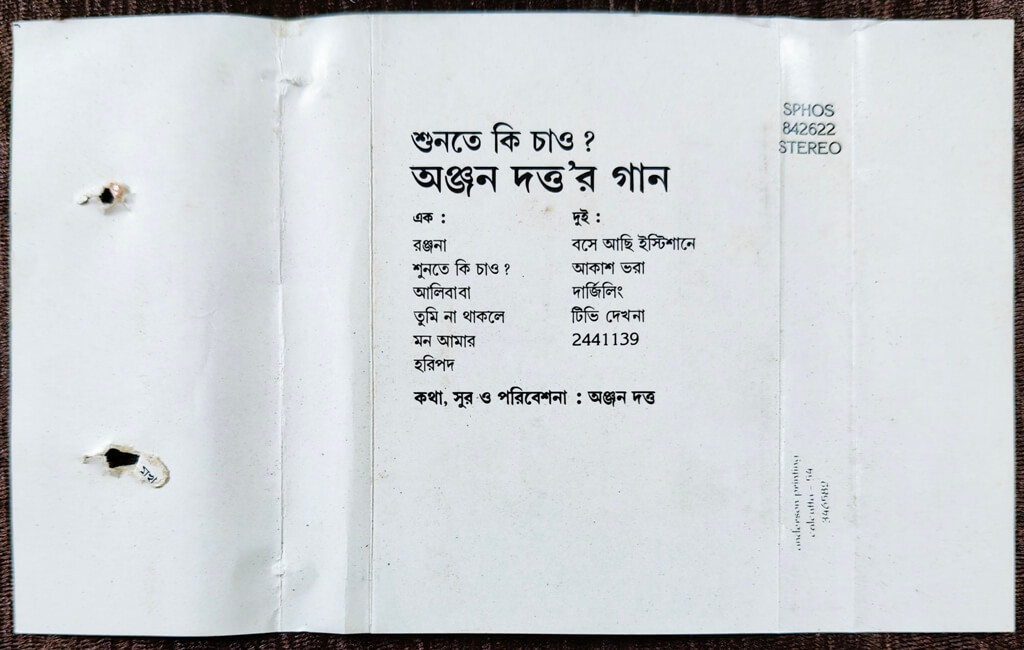 শুনতে কি চাও ?
অঞ্জন দত্ত'র গান
এক :
রঞ্জনা
শুনতে কি চাও ?
আলিবাবা
তুমি না থাকলে
মন আমার
হরিপদ
দুই :
বসে আছি ইস্টিশানে
আকাশ ভরা
দার্জিলিং
টিভি দেখনা
2441139
কথা, সুর ও পরিবেশনা : অঞ্জন দত্ত
SPHOS
842622
STEREO
anderson printing
calcutta - 54